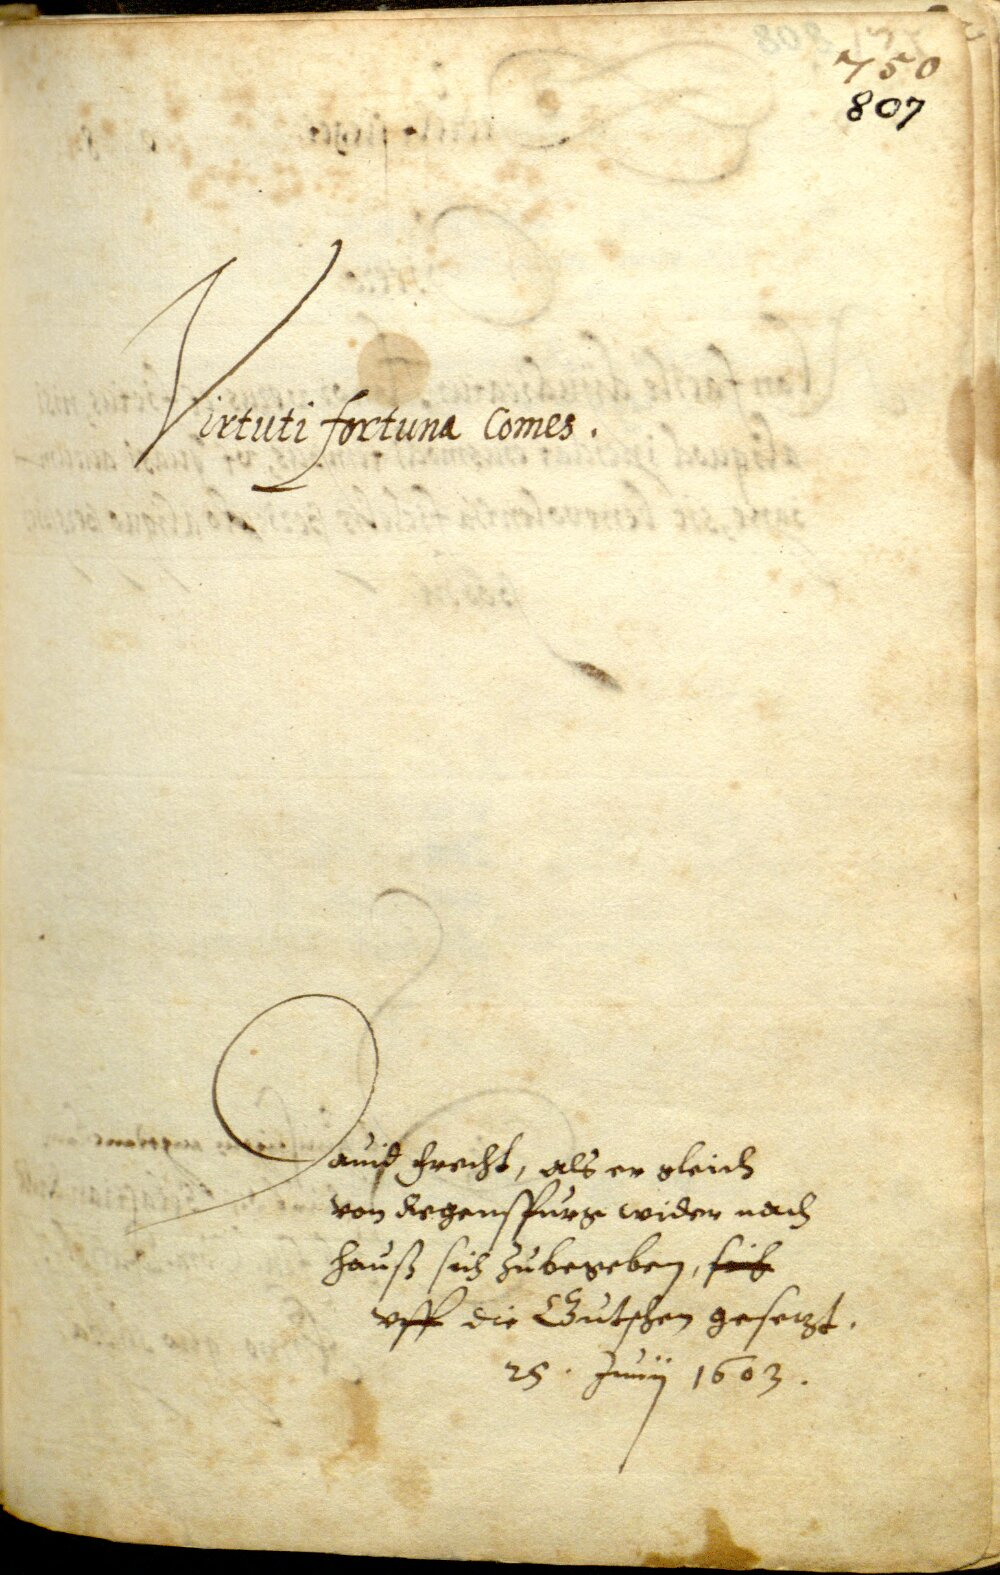 750
807
Virtuti fortuna Comes.
David Frecht, als er gleich
von Regenspurg wider nach
hauß sich zubegeben,
vff die Gutschen gesetzt.
25. Junij 1603.